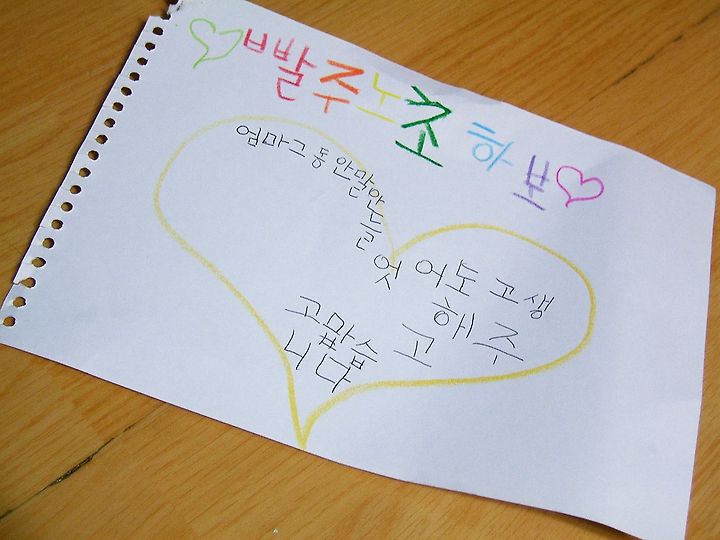 빨주노초 하보
엄마그동안말안
들
엇어도 고생
해주
고
고맙습
니다